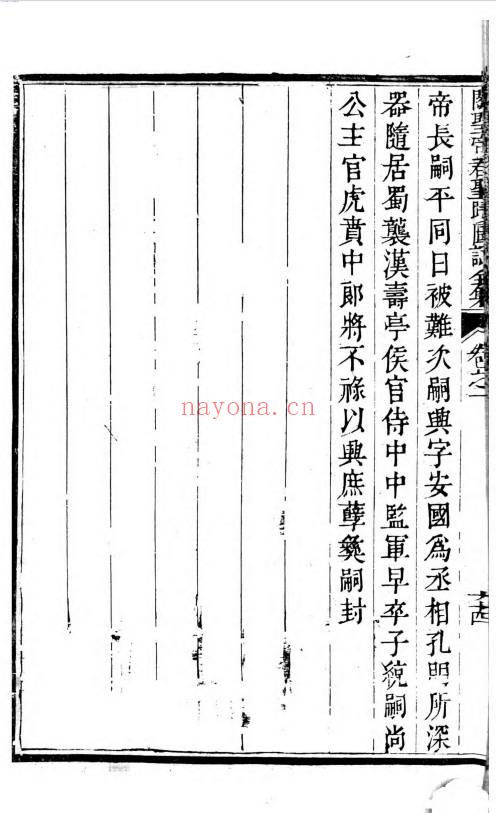 關聖帝君聖蹟圖誌全集 卷之一
帝長嗣平同日被難次嗣興字安國為丞相孔明所深
器隨居蜀襲漢壽亭侯官侍中中監軍早卒子統嗣尚
公主官虎賁中郎將不祿以興庶孽彝嗣封
nayona.cn